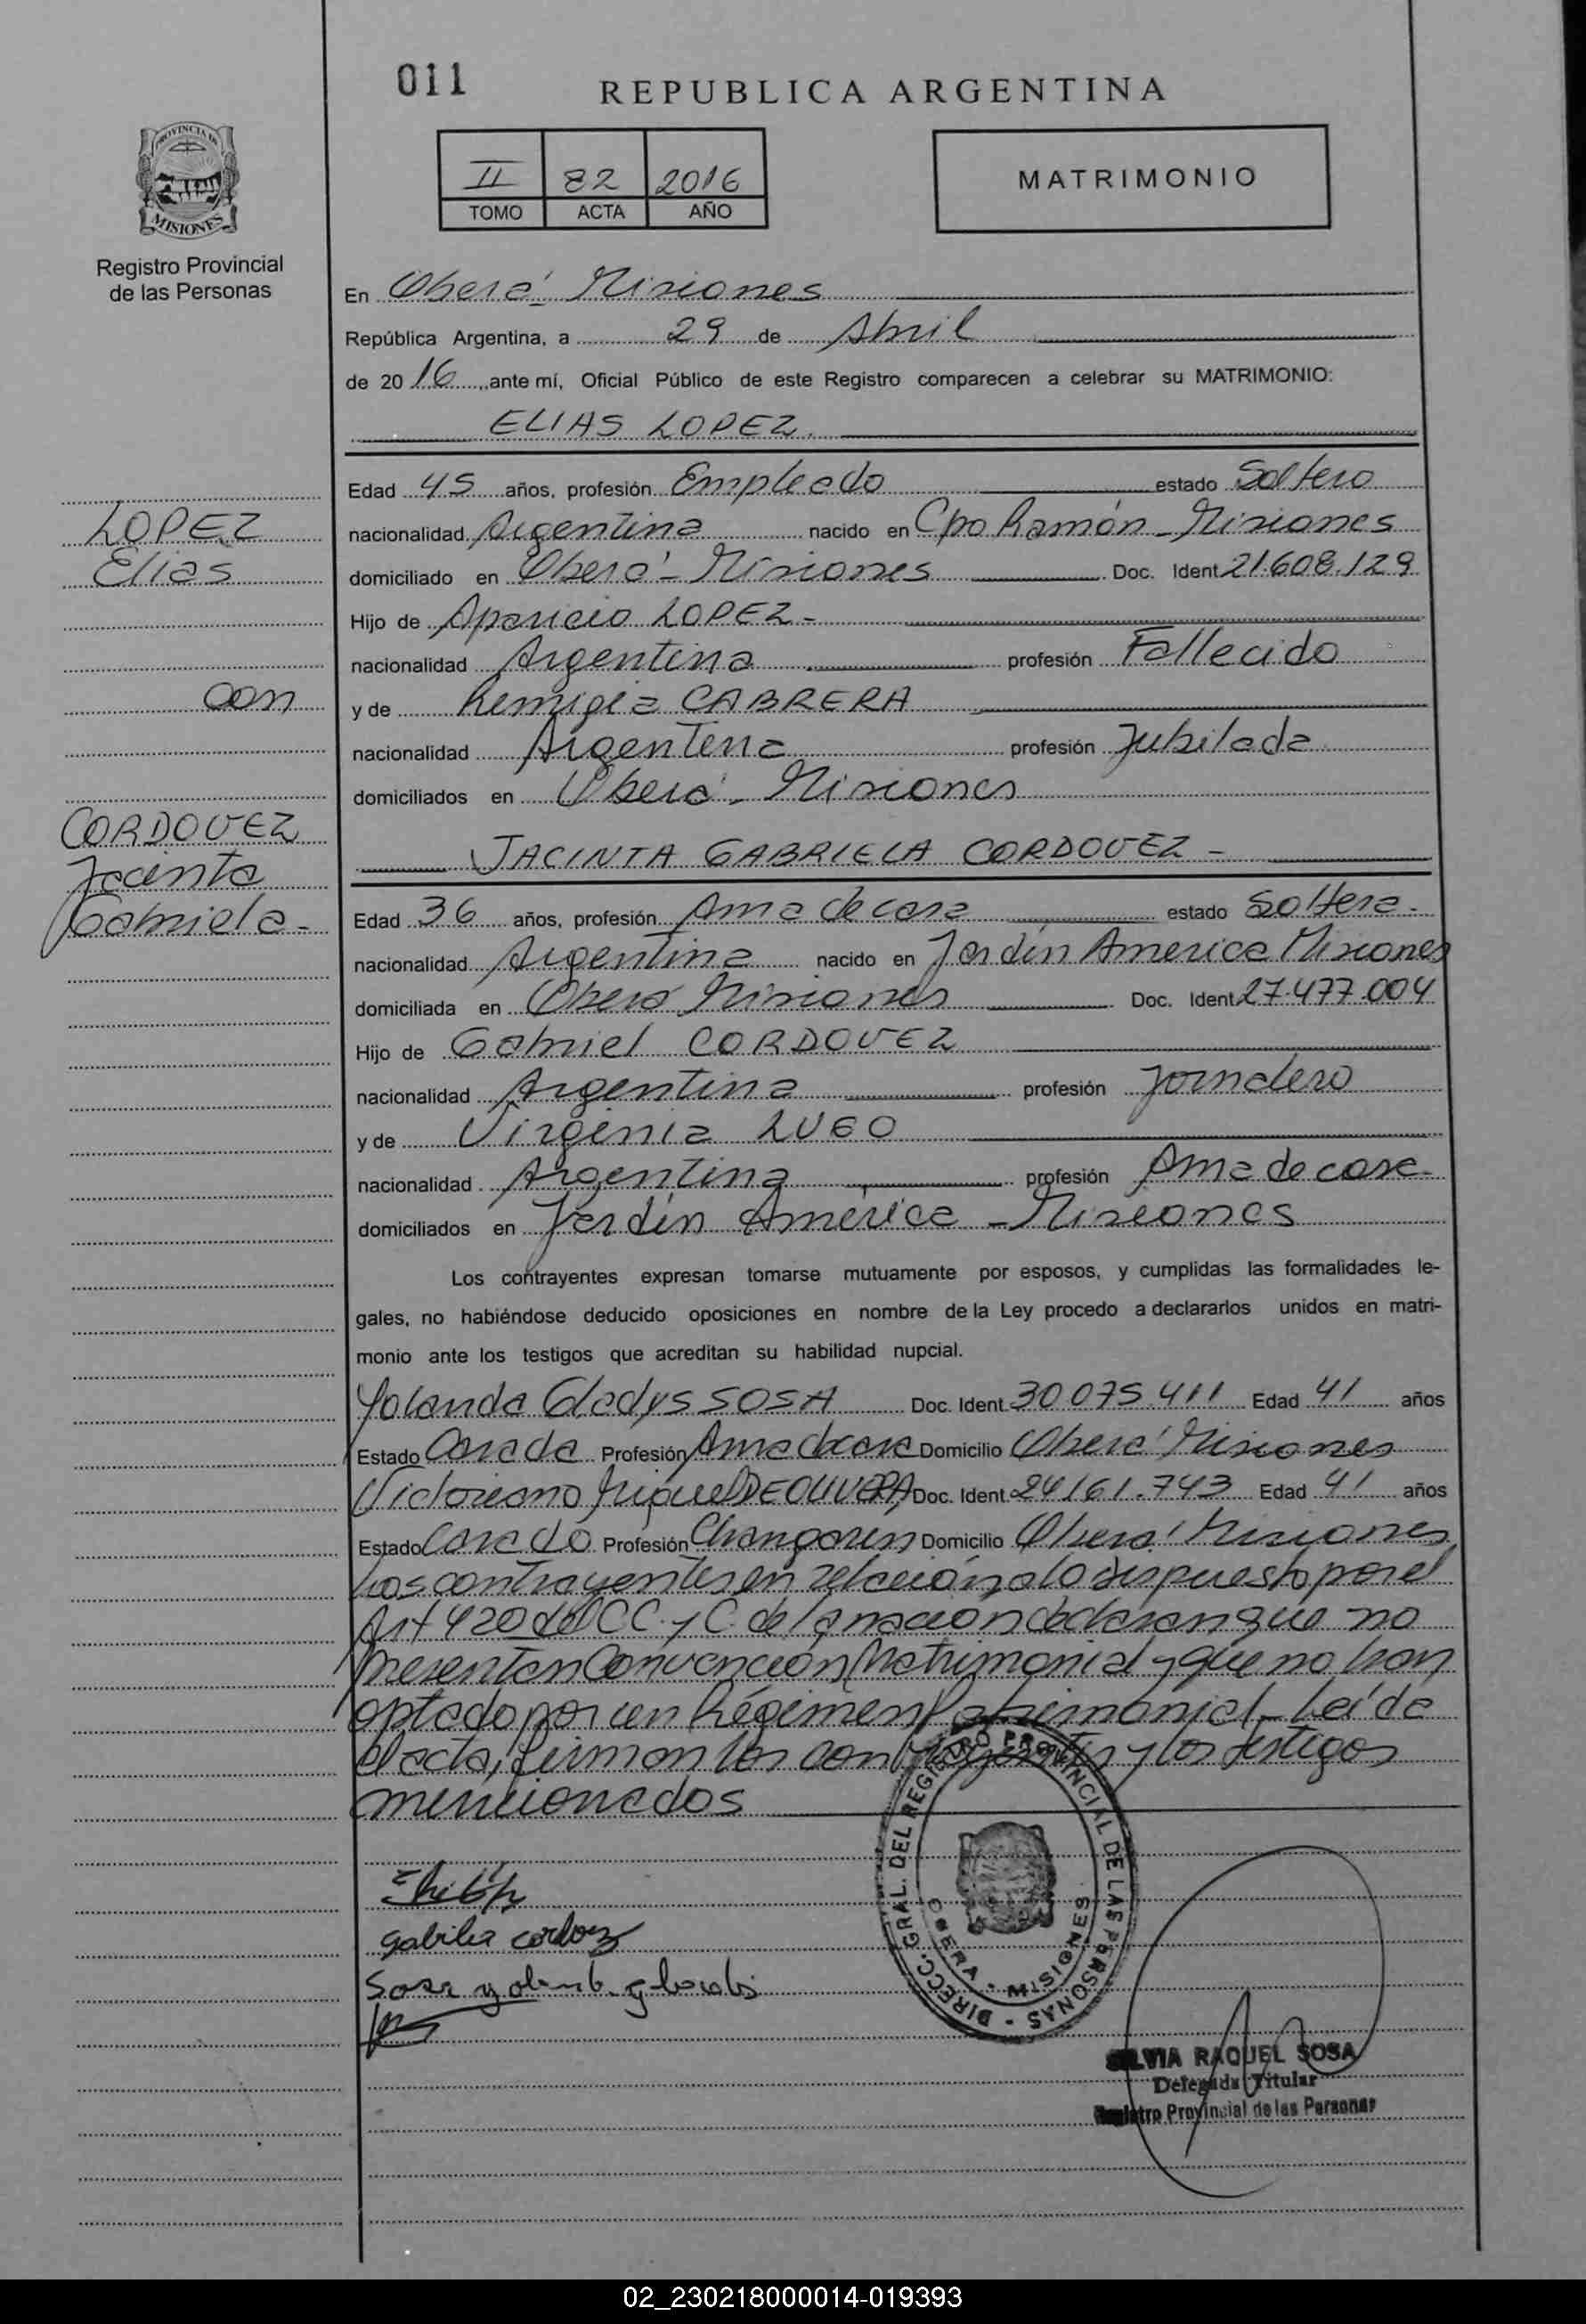 011
REPUBLICA ARGENTINA
PROVINCIA DE
MISIONES
Registro Provincial
de las Personas
II 82 2016
TOMO ACTA AÑO
MATRIMONIO
En Oberá Misiones
República Argentina, a 29 de Abril
de 2016, ante mí, Oficial Público de este Registro comparecen a celebrar su MATRIMONIO:
ELIAS LOPEZ.
LOPEZ
Elias
con
CORDOVEZ
Jacinta
Gabriela-
Edad 45 años, profesión Empleado estado Soltero
nacionalidad Argentina nacido en Cpo Ramón - Misiones
domiciliado en Oberá - Misiones Doc. Ident 21.608.129
Hijo de Aparicio LOPEZ -
nacionalidad Argentina profesión Fallecido
y de Remigia CABRERA
nacionalidad Argentina profesión Jubilada
domiciliados en Oberá - Misiones
JACINTA GABRIELA CORDOVEZ -
Edad 36 años, profesión Ama de casa estado Soltera -
nacionalidad Argentina nacido en Jardín America Misiones
domiciliada en Oberá Misiones Doc. Ident 27.477.004
Hijo de Gabriel CORDOVEZ
nacionalidad Argentina profesión Jornalero
y de Virginia LUGO
nacionalidad Argentina profesión Ama de casa -
domiciliados en Jardín América - Misiones
Los contrayentes expresan tomarse mutuamente por esposos, y cumplidas las formalidades le-
gales, no habiéndose deducido oposiciones en nombre de la Ley procedo a declararlos unidos en matri-
monio ante los testigos que acreditan su habilidad nupcial.
Yolanda Gladys SOSA Doc. Ident. 30 075.411 Edad 41 años
Estado Casada Profesión Ama de casa Domicilio Oberá Misiones
Victoriano Miguel DE OLIVERA Doc. Ident. 24161.743 Edad 41 años
Estado Casado Profesión Changarin Domicilio Oberá Misiones
Los contrayentes en relación a lo dispuesto por el
Art 420 del CC. y C. de la nación declaran que no
presentan Convención Matrimonial y que no han
optado por un Régimen Patrimonial - Leída
el acta, firman los contrayentes y los testigos
mencionados
DIRECC. GRAL. DEL REGISTRO PROVINCIAL DE LAS PERSONAS -
OBERA - MISIONES
SILVIA RAQUEL SOSA
Delegada Titular
Registro Provincial de las Personas
02_230218000014-019393